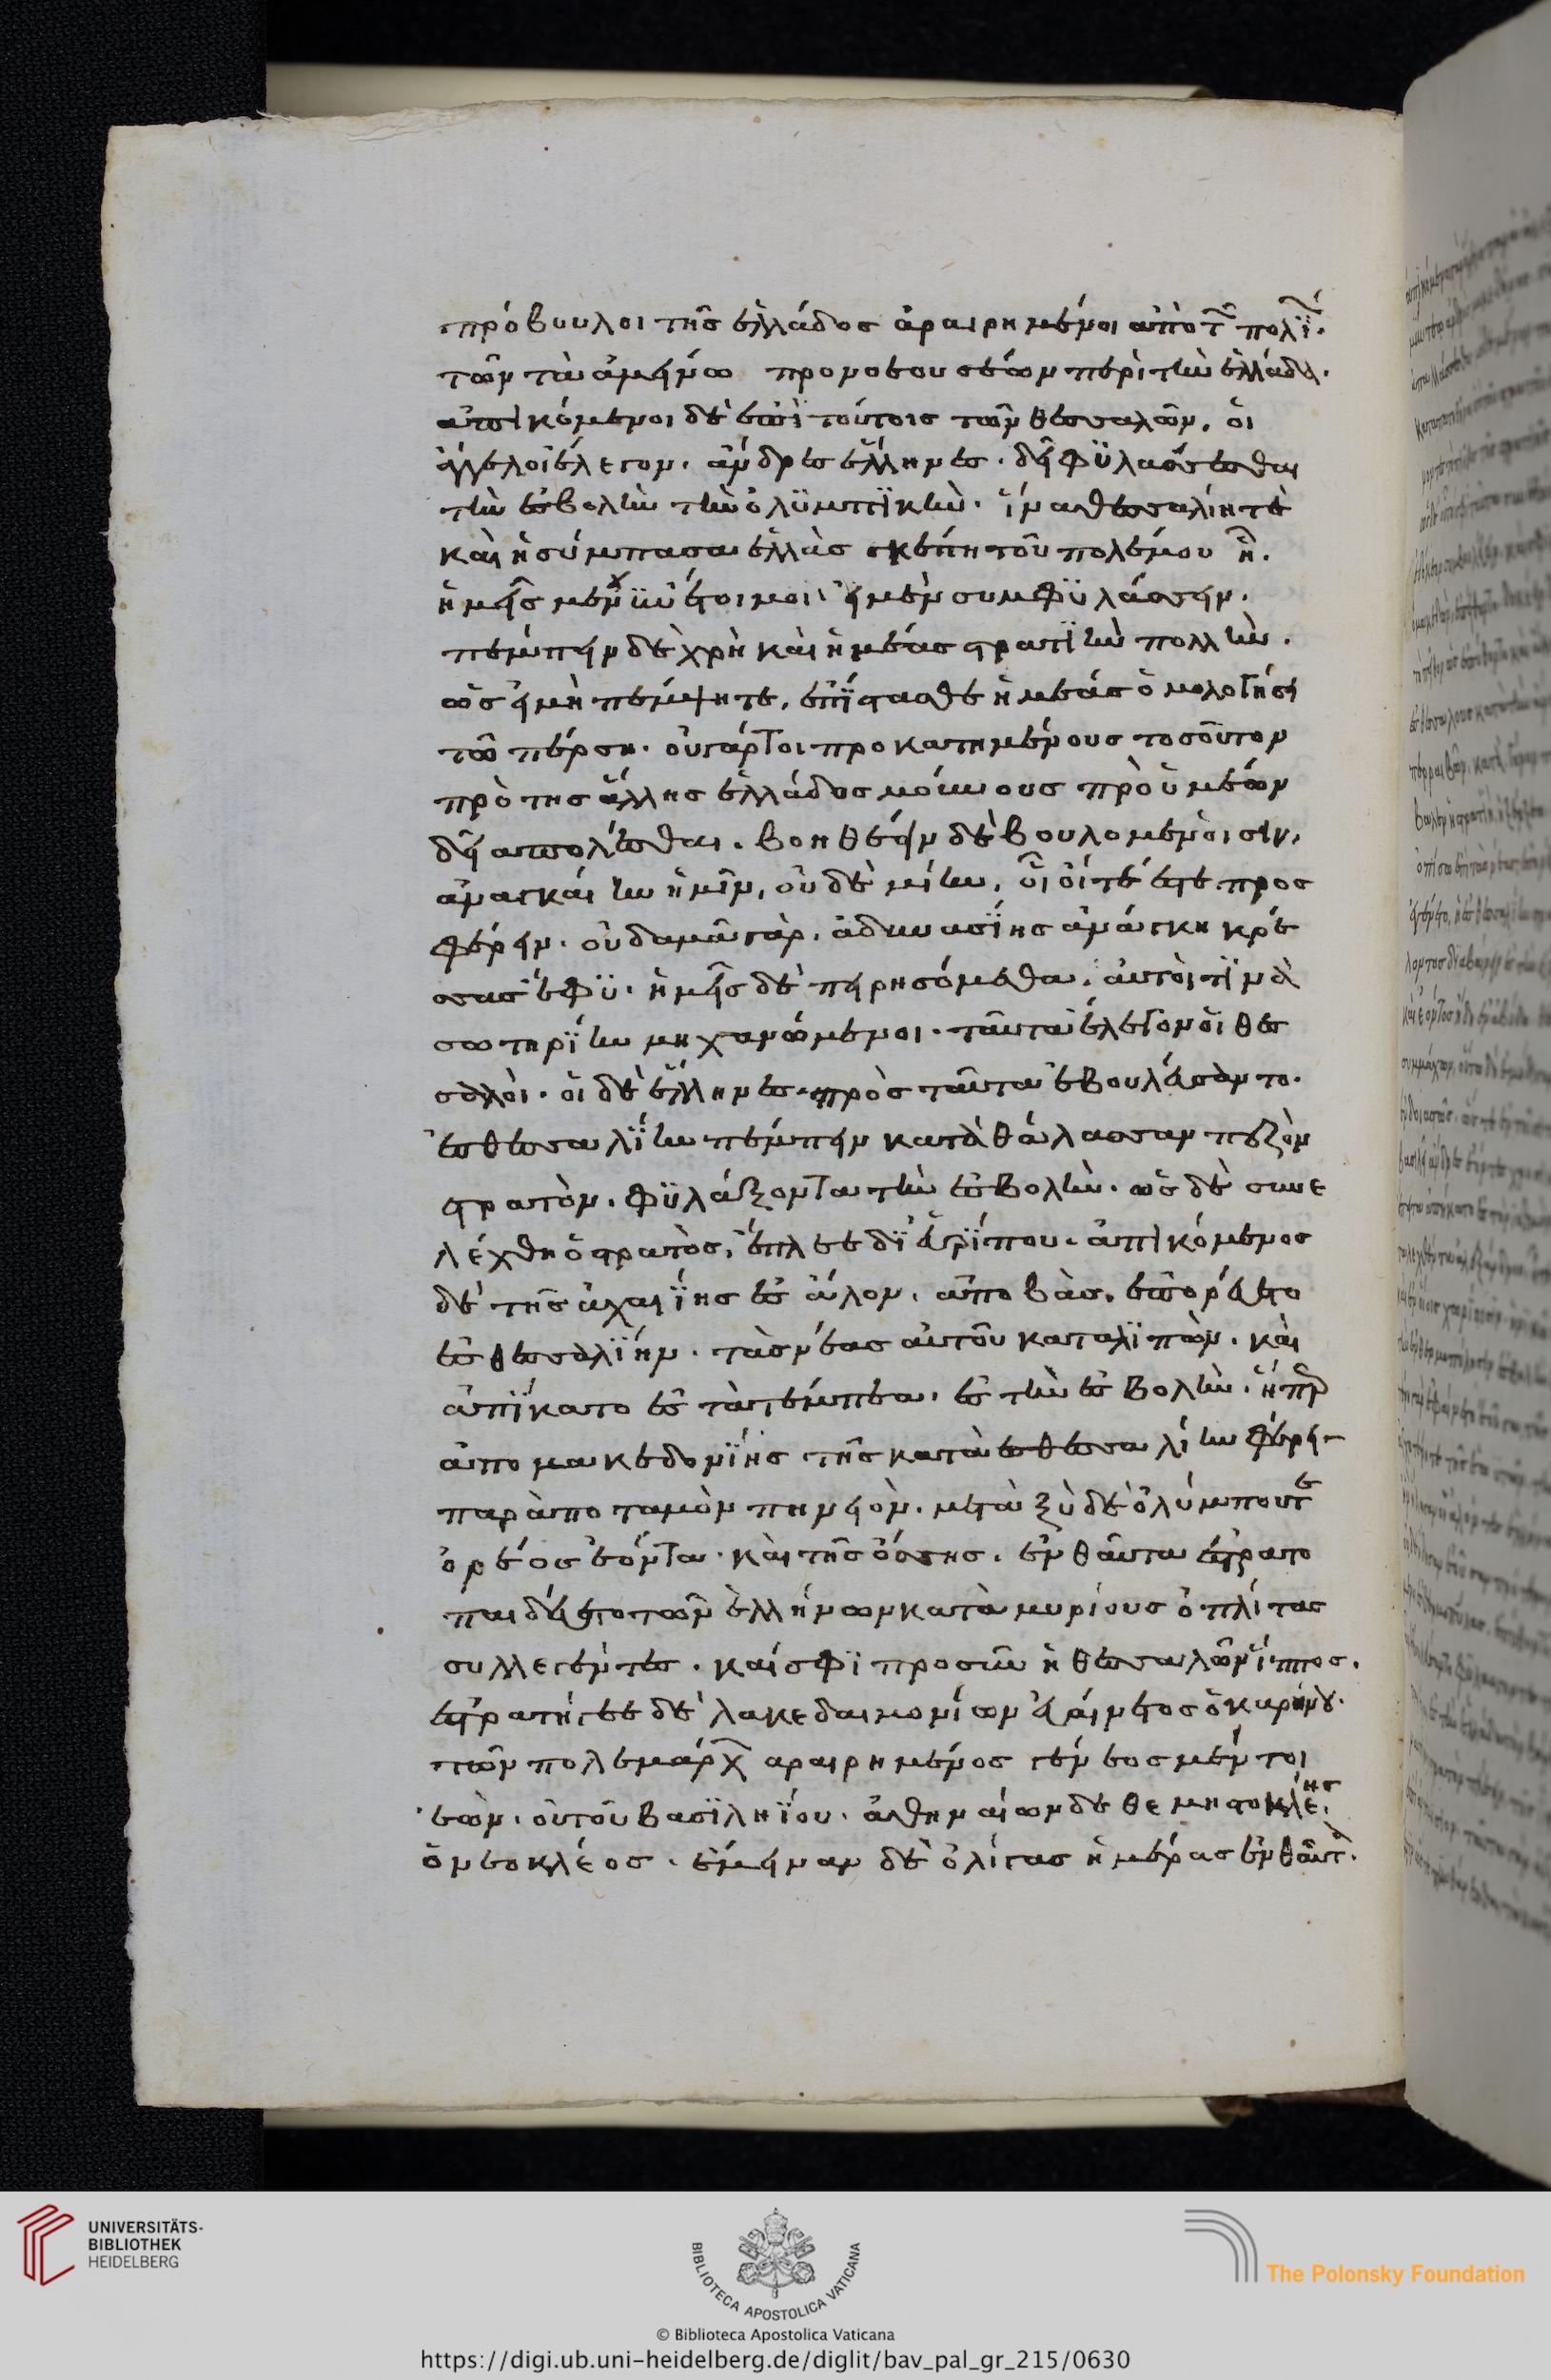 πρόβουλοι τῆς ἑλλάδος ἀραιρημένοι ἀπὸ τ̑ πολΐ.
τῶν τὰ ἀμείνω προνοεουσέων περὶ τὴν ἑλλάδα.
ἀπικόμενοι δὲ ἐπὶ τούτοις τῶν θεσσαλῶν, οἱ
ἄγγελοι ἔλεγον. ἄνδρες ἕλληνες. δεῖ φϋλάσσεσθαι
τὴν ἐσβολὴν τὴν ὀλϋμπϊκὴν. ἵνα θεσσαλίη τὲ
καὶ ἡ σύμπασα ἑλλὰς σκέπη τοῦ πολέμου ἦ.
ἡμεῖς μὲν νῦν ἕτοιμοι εἰμὲν συμφϋλάσσειν.
πέμπειν δὲ χρὴ καὶ ἡμέας στρατϊὴν πολλὴν.
ὡς εἰ μὴ πέμψητε, ἐπίστασθε ἡμέας ὁμολογήσει
τῶ πέρση. οὐ γάρ τοι προκατημένους τοσοῦτον
πρὸ της ἄλλης ἑλλάδος μούνους πρὸ ὑμέων
δεῖ ἀπολέσθαι. βοηθέειν δὲ βουλομένοισιν,
ἀναγκάιην ἡμῖν, οὐδὲ μίην, οἷοί τέ ἐστε προς
φέρειν. οὐδαμᾶ γὰρ. ἀδυνασΐης ἀνάγκη κρέ
σσας ἔφϋ. ἡμεῖς δὲ πειρησόμεθα. αὐτοί τϊνὰ
σωτηρΐην μηχανώμενοι. ταῦτα ἔλεγον οἱ θεσ
σαλοὶ. οἱ δὲ ἕλληνες πρὸς ταῦτα ἐβουλέυσαντο.
ἐς θεσσαλΐην πέμπειν κατὰ θάλασσαν πεζὸν
στρατὸν. φϋλάξοντα τὴν ἐσβολὴν. ὡς δὲ συνε
λέχθη ὁ στρατὸς, ἔπλεε δϊ ἐυρΐπου. ἀπικόμενος
δὲ τῆς ἀχαιΐης ἐς ἄλον. ἀποβὰς, ἐπορέυετο
ἐς θεσσαλΐην. τὰς νέας αὐτοῦ καταλϊπὼν. καὶ
ἀπΐκατο ἐς τὰ τέμπεα. ἐς τὴν ἐσβολὴν. ἥπερ
ἀπο μακεδονΐης τῆς κατὰ ἐς θεσσαλίην φέρει
παρὰ ποταμὸν πηνειὸν. μεταξὺ δὲ ὀλύμπου τε
ὄρεος ἐόντα. καὶ τῆς ὄσσης. ἐνθαῦτα ἐστρατο
παιδέυετο τῶν ἑλλήνων κατὰ μυρίους ὁπλίτας
συλλεγέντες. καί σφϊ προσῆν ἡ θεσσαλῶν ἵππος.
ἐστρατήγεε δὲ λακεδαιμονίων ἐυάινετος ὁ καρήνου.
τῶν πολεμάρχ̑ ἀραιρημένος γένεος μέντοι
ἐὼν. οὐ τοῦ βασϊληΐου. ἀθηναίων δὲ θεμιστοκλέης
ὁ νεοκλέος. ἔμειναν δὲ ὀλίγας ἡμέρας ἐνθαῦτ̀.
UNIVERSITÄTS-
BIBLIOTHEK
HEIDELBERG
BIBLIOTECA APOSTOLICA VATICANA
The Polonsky Foundation
© Biblioteca Apostolica Vaticana
https://digi.ub.uni-heidelberg.de/diglit/bav_pal_gr_215/0630